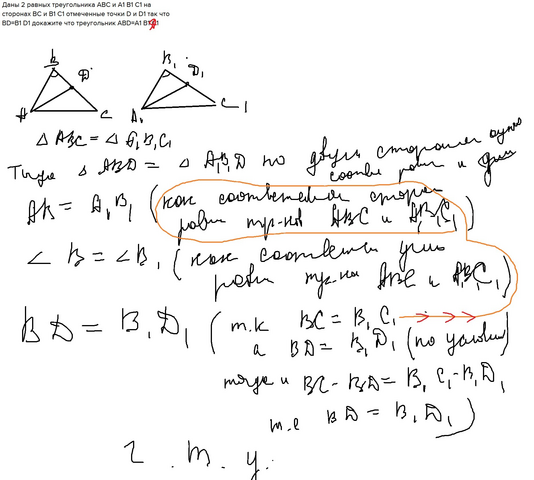 Даны 2 равных треугольника ABC и A1 B1 C1 на
сторонах BC и B1 C1 отмеченные точки D и D1 так что
BD=B1 D1 докажите что треугольник ABD=A1 B1
B D B1 D1
A C A1 C 1
△ ABC = △ A1B1C1
Тогда △ ABD = △ A1B1D по двум сторонам
соотв равн и
AB = A1B1 (как соответствен сторон
равн тр-ков ABC и A1B1C1)
∠ B = ∠B1 (как соответствен углы
равн тр-ка ABC и A1B1C1)
BD = B1D1 (т.к BC = B1C1
а BD = B1D1 (по условию)
тогда и BC - BD = B1C1-B1D1
т.е BD = B1D1)
г. т. у.